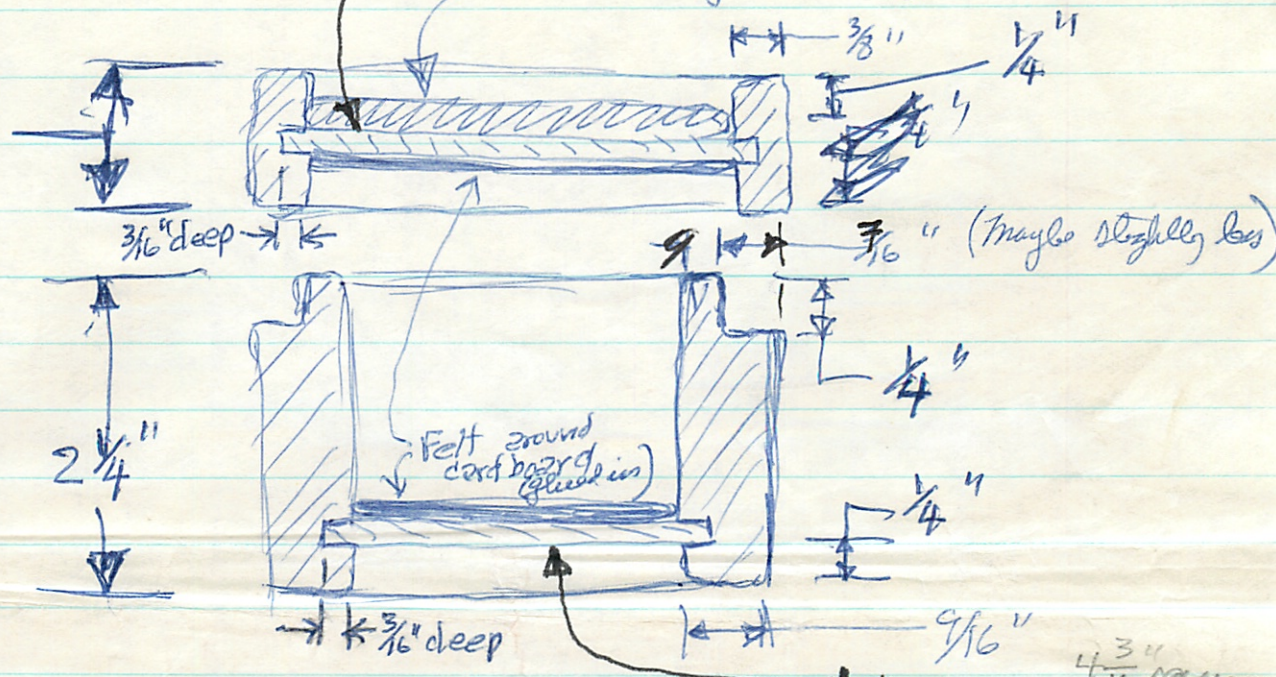 3/8"
1/4"
3/16" deep
/16" (Maybe slightly less)
1/4"
2 1/4"
Felt around
cardboard
(glued in)
1/4"
3/16" deep
9/16"